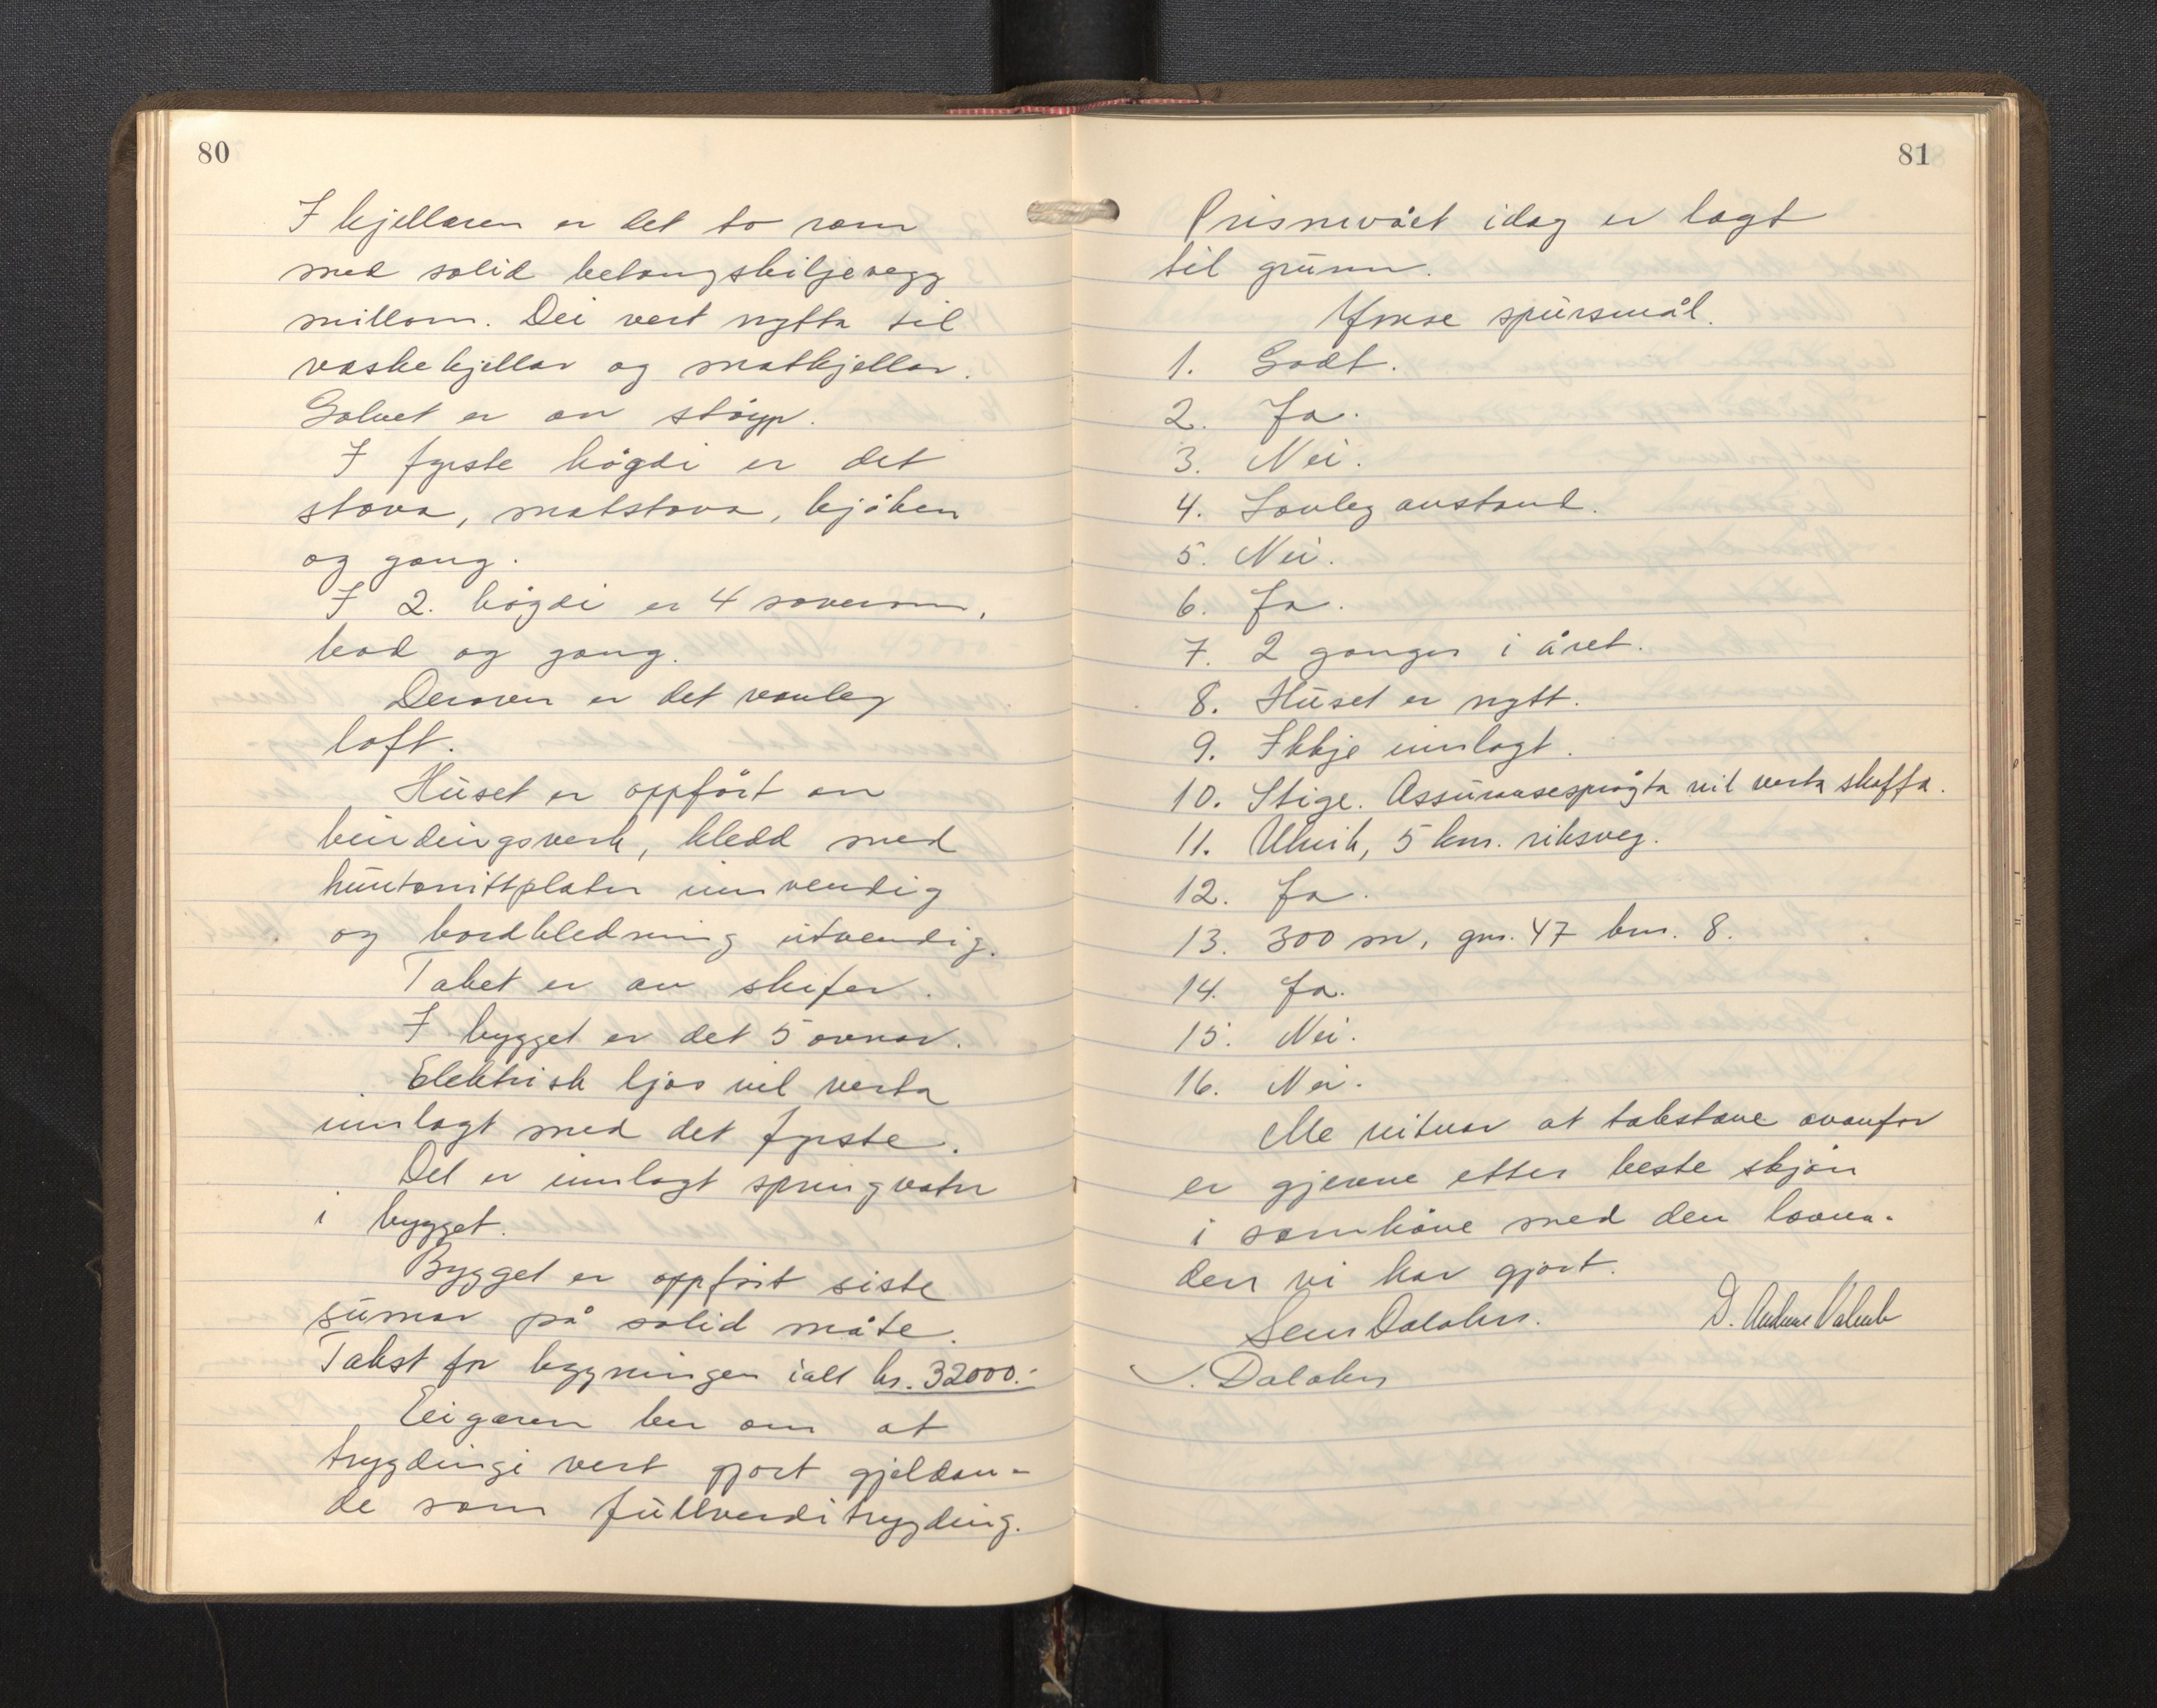 80
I kjellaren er det to rom
med solid betongskiljevegg
millom. Dei vert nytta til
vaskekjellar og matkjellar.
Golvet er av støyp.
I fyrste høgdi er det
stova, matstova, kjøken
og gang.
I 2. høgdi er 4 soverom,
bad og gang.
Derover er det vanleg
loft.
Huset er oppført av
bindingsverk, kledd med
huntonittplater innvendig
og bordkledning utvendig.
Taket er av skifer.
I bygget er det 5 ovnar.
Elektrisk ljos vil verta
innlagt med det fyrste.
Det er innlagt springvatn
i bygget.
Bygget er oppført siste
sumar på solid måte.
Takst for bygningen ialt kr. 32000.-
Eigaren ber om at
trygdingi vert gjort gjeldan-
de som fullverditrygding.
81
Prisnivået idag er lagt
til grunn.
Ymse spursmål.
1. Godt.
2. Ja.
3. Nei.
4. Lovleg avstand.
5. Nei.
6. Ja.
7. 2 ganger i året.
8. Huset er nytt.
9. Ikkje innlagt.
10. Stige. Assuransesprøyta vil verta skaffa.
11. Ulvik, 5 km. riksveg.
12. Ja.
13. 300 m, gnr. 47 bnr. 8.
14. Ja.
15. Nei.
16. Nei.
Me vitnar at takstane ovanfor
er gjevne etter beste skjøn
i samhøve med den lovna-
den vi har gjort.
D.
Dalaker.
. Dalaker